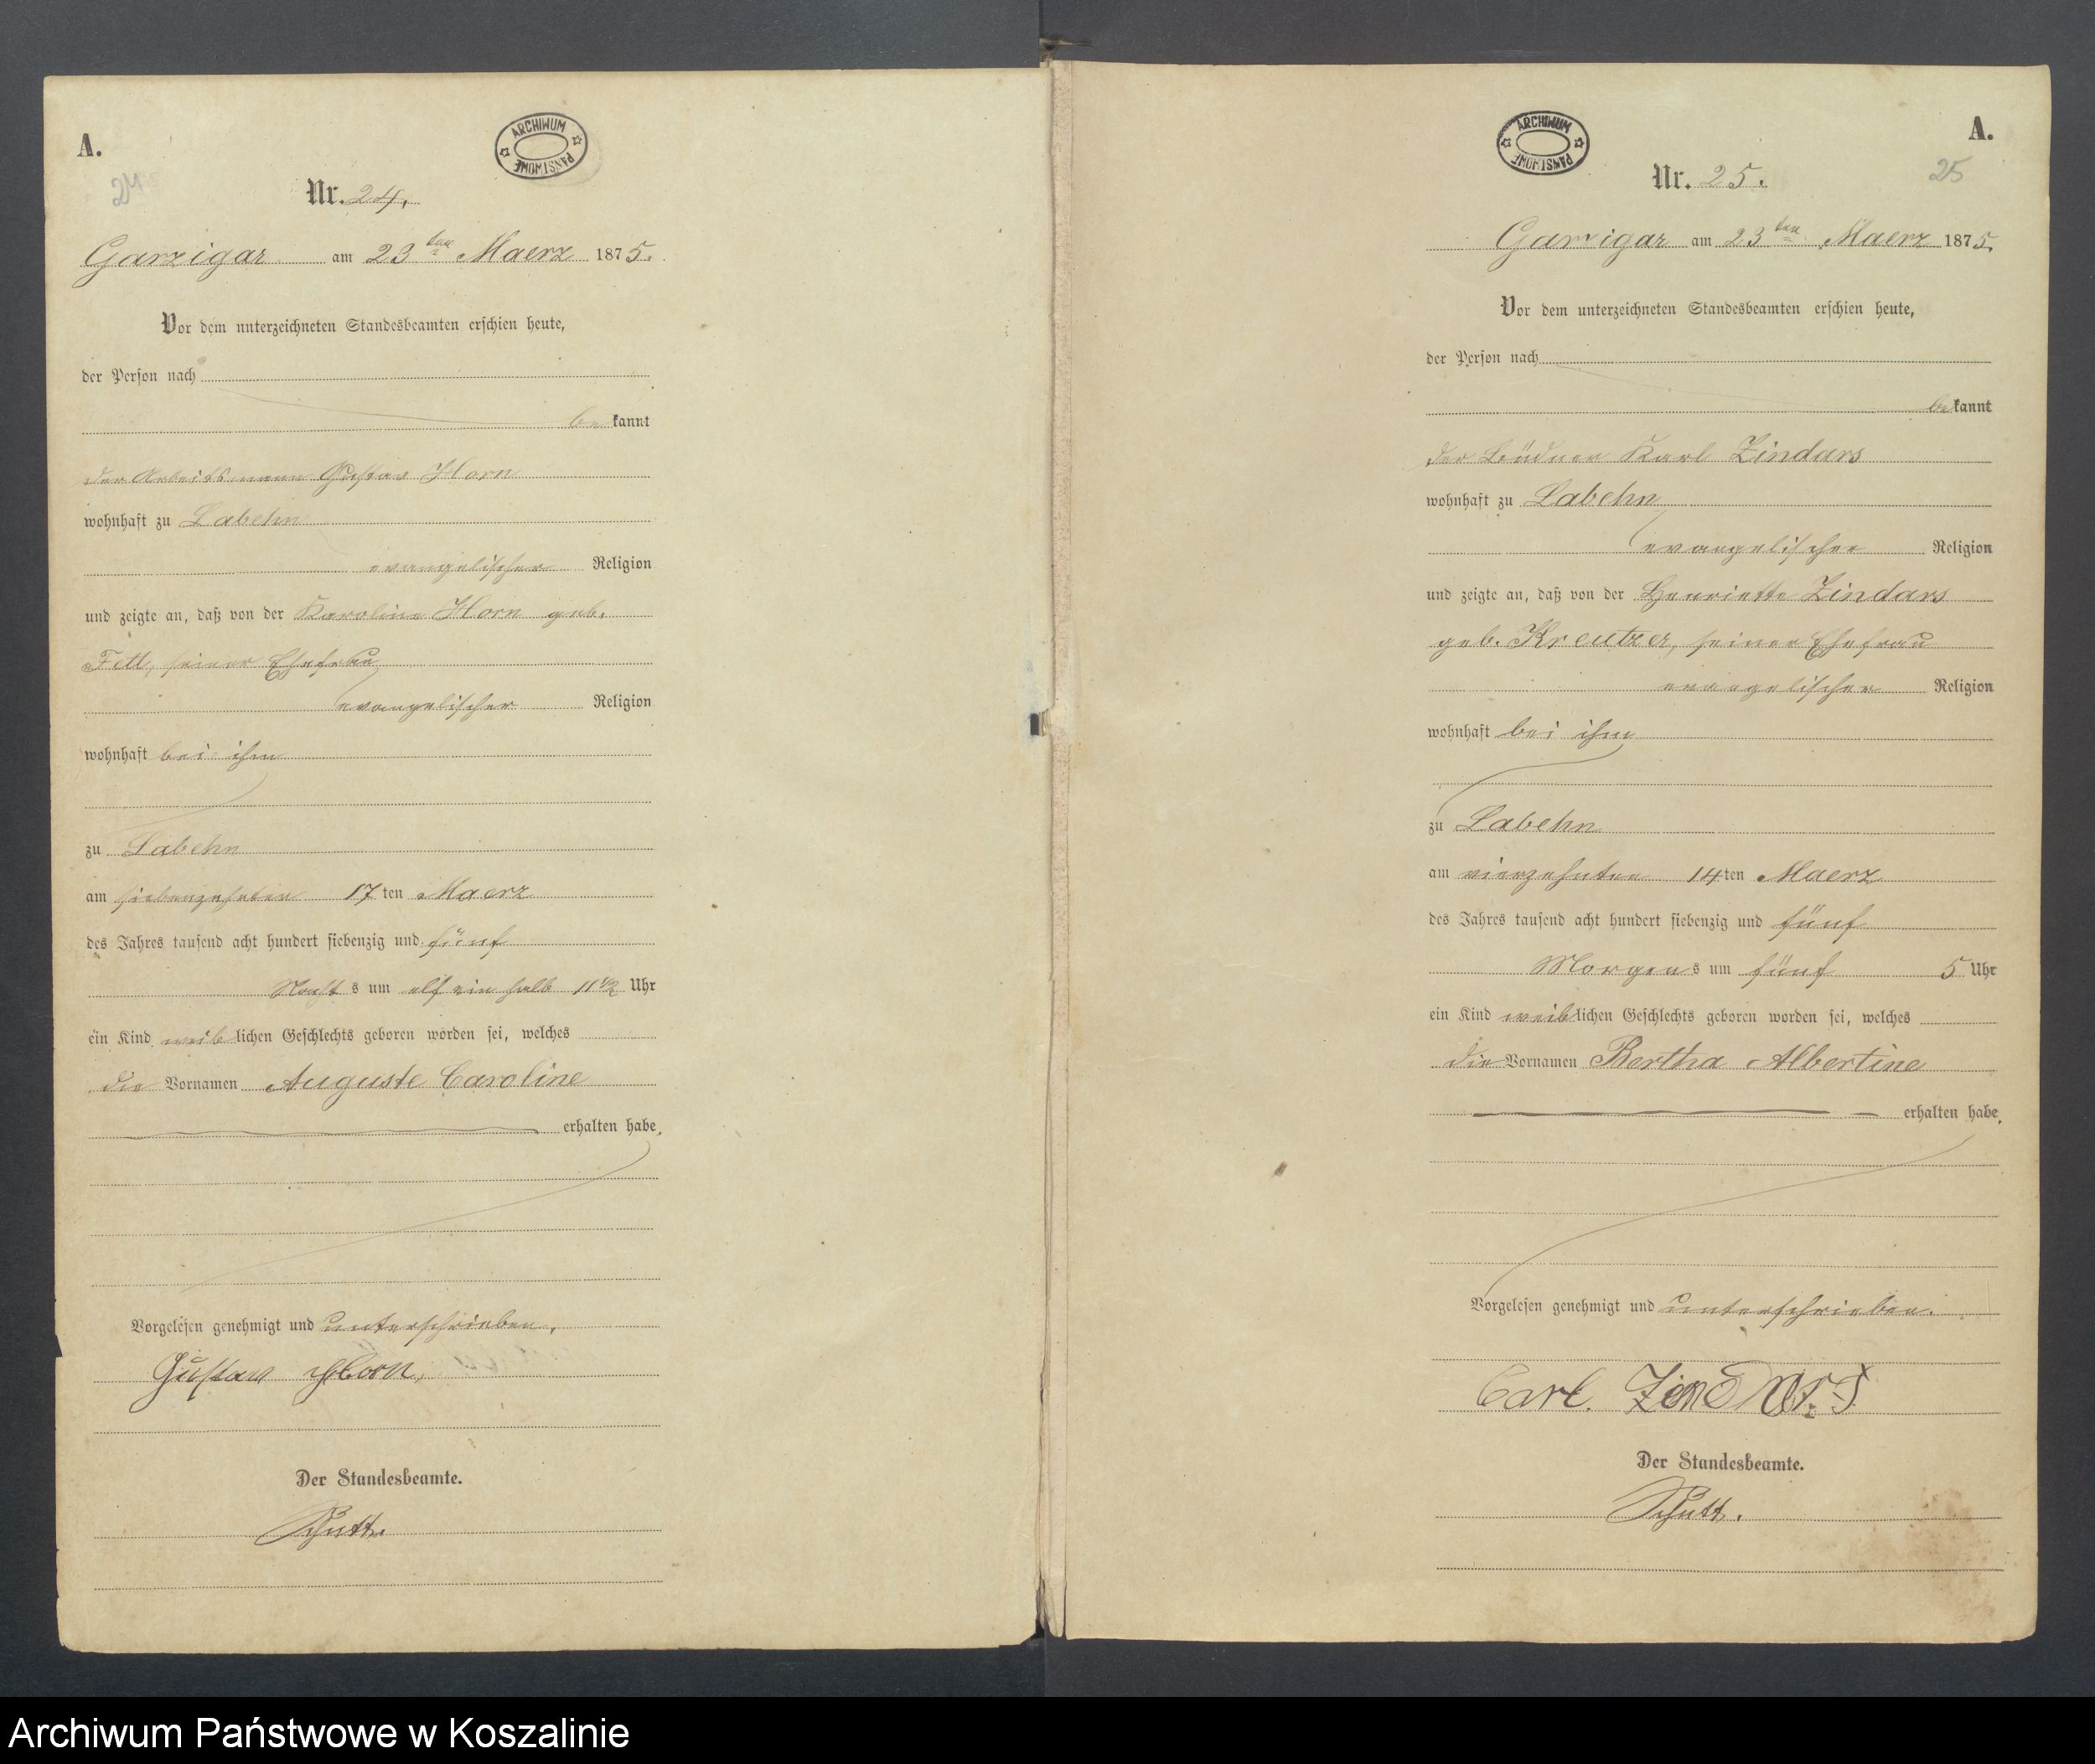 A.
ARCHIWUM PAŃSTWOWE
24
Nr. 24.
Garzigar am 23ten Maerz 1875.
Vor dem unterzeichneten Standesbeamten erschien heute,
der Person nach
bekannt
der Arbeitsmann Gustav Horn
wohnhaft zu Labehn
evangelischer Religion
und zeigte an, daß von der Karoline Horn geb.
Fett, seiner Ehefrau
evangelischer Religion
wohnhaft bei ihm
zu Labehn
am siebenzehnten 17ten Maerz
des Jahres tausend acht hundert siebenzig und fünf
Nachts um elf ein halb 11 1/2 Uhr
ein Kind weiblichen Geschlechts geboren worden sei, welches
die Vornamen Auguste Caroline
erhalten habe.
Vorgelesen genehmigt und unterschrieben.
Gustav Horn.
Der Standesbeamte.
Schutt.
A.
ARCHIWUM PAŃSTWOWE
25
Nr. 25.
Garzigar am 23ten Maerz 1875.
Vor dem unterzeichneten Standesbeamten erschien heute,
der Person nach
bekannt
der Büdner Karl Zindars
wohnhaft zu Labehn
evangelischer Religion
und zeigte an, daß von der Henriette Zindars
geb. Kreutzer, seiner Ehefrau
evangelischer Religion
wohnhaft bei ihm
zu Labehn
am vierzehnten 14ten Maerz
des Jahres tausend acht hundert siebenzig und fünf
Morgens um fünf 5 Uhr
ein Kind weiblichen Geschlechts geboren worden sei, welches
die Vornamen Bertha Albertine
erhalten habe.
Vorgelesen genehmigt und unterschrieben.
Carl. Zindars
Der Standesbeamte.
Schutt.
Archiwum Państwowe w Koszalinie